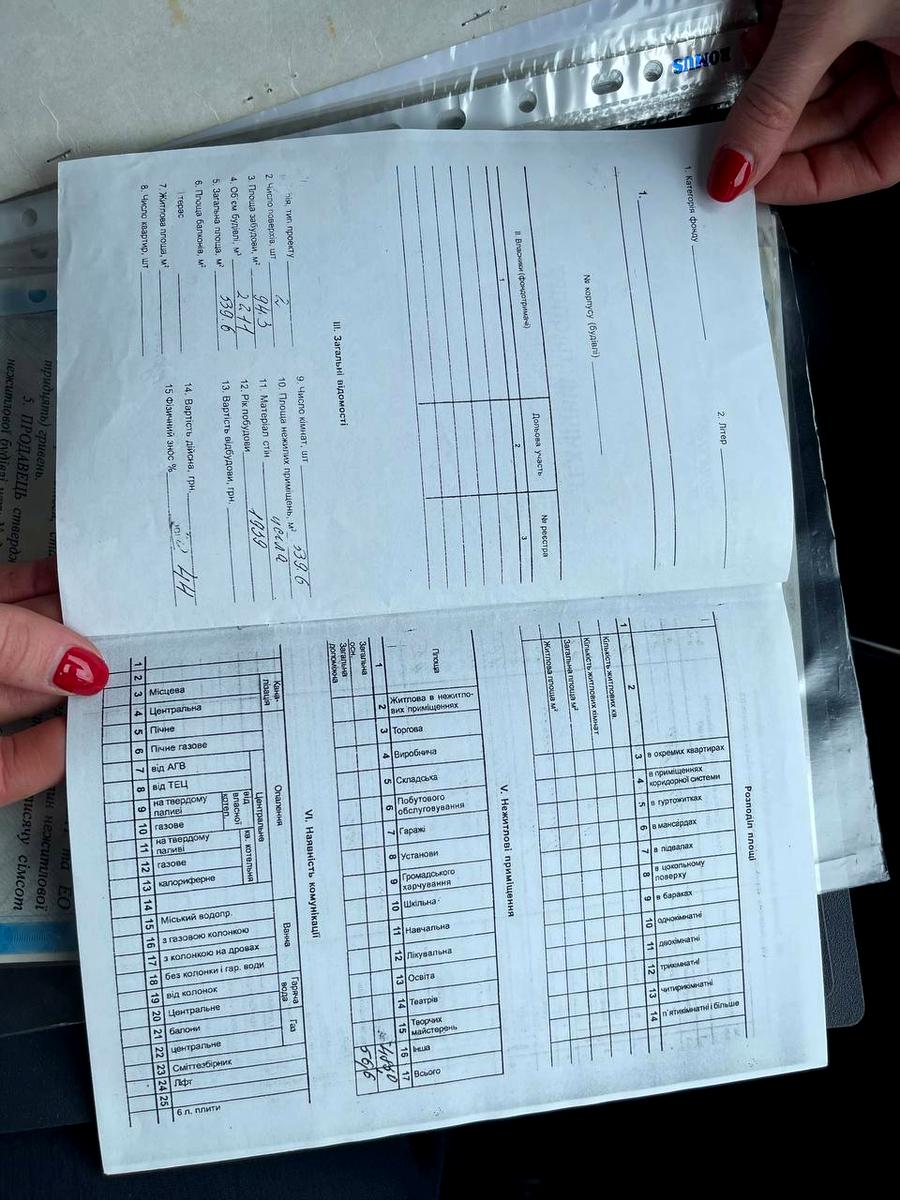 ROMUS
1. Категорія фонду
2. Літер
1.
№ корпусу (будівлі)
II. Власники (фондотримачі)
Дольова участь
№ реєстра
1
2
3
III. Загальні відомості
ія, тип проекту
2. Число поверхів, шт 2
3. Площа забудови, м² 943
4. Об'єм будівлі, м³ 2211
5. Загальна площа, м² 539.6
6. Площа балконів, м²
і терас
7. Житлова площа, м²
8. Число квартир, шт
9. Число кімнат, шт
10. Площа нежилих приміщень, м² 539.6
11. Матеріал стін
12. Рік побудови 1939
13. Вартість відбудови, грн.
14. Вартість дійсна, грн.
15 Фізичний знос % 44
Розподіл площі
в окремих квартирах
в приміщеннях коридорної системи
в гуртожитках
в мансардах
в підвалах
в цокольному поверху
в бараках
однокімнатні
двохкімнатні
трикімнатні
читирикімнатні
п'ятикімнатні і більше
1 2 3 4 5 6 7 8 9 10 11 12 13 14
Кількість житлових кв.
Кількість житлових кімнат
Загальна площа м²
Житлова площа м²
V. Нежитлові приміщення
Площа
Житлова в нежитло-
вих приміщеннях
Торгова
Виробнича
Складська
Побутового обслуговування
Гаражі
Установи
Громадського харчування
Шкільна
Навчальна
Лікувальна
Освіта
Театрів
Творчих майстерень
Інша
Всього
1 2 3 4 5 6 7 8 9 10 11 12 13 14 15 16 17
Загальна осн.
Загальна допоміжна
VI. Наявність комунікації
Кана-
лізація
Опалення
Ванна
Гаряча вода
Газ
Центральне
від власної котел.
ка - котельня
Місцева
Центральна
Пічне
Пічне газове
від АГВ
від ТЕЦ
на твердому паливі
газове
на твердому паливі
газове
калориферне
Міський водопр.
з газовою колонкою
з колонкою на дровах
без колонки і гар. води
від колонок
Центральне
балони
центральне
Сміттезбірник
Ліфт
6 л. плити
1 2 3 4 5 6 7 8 9 10 11 12 13 14 15 16 17 18 19 20 21 22 23 24 25
тридцять) гривень.
5. ПРОДАВЕЦЬ стверд
нежитлової будівлі
ЕО
нежитлової
тисячу сімсот